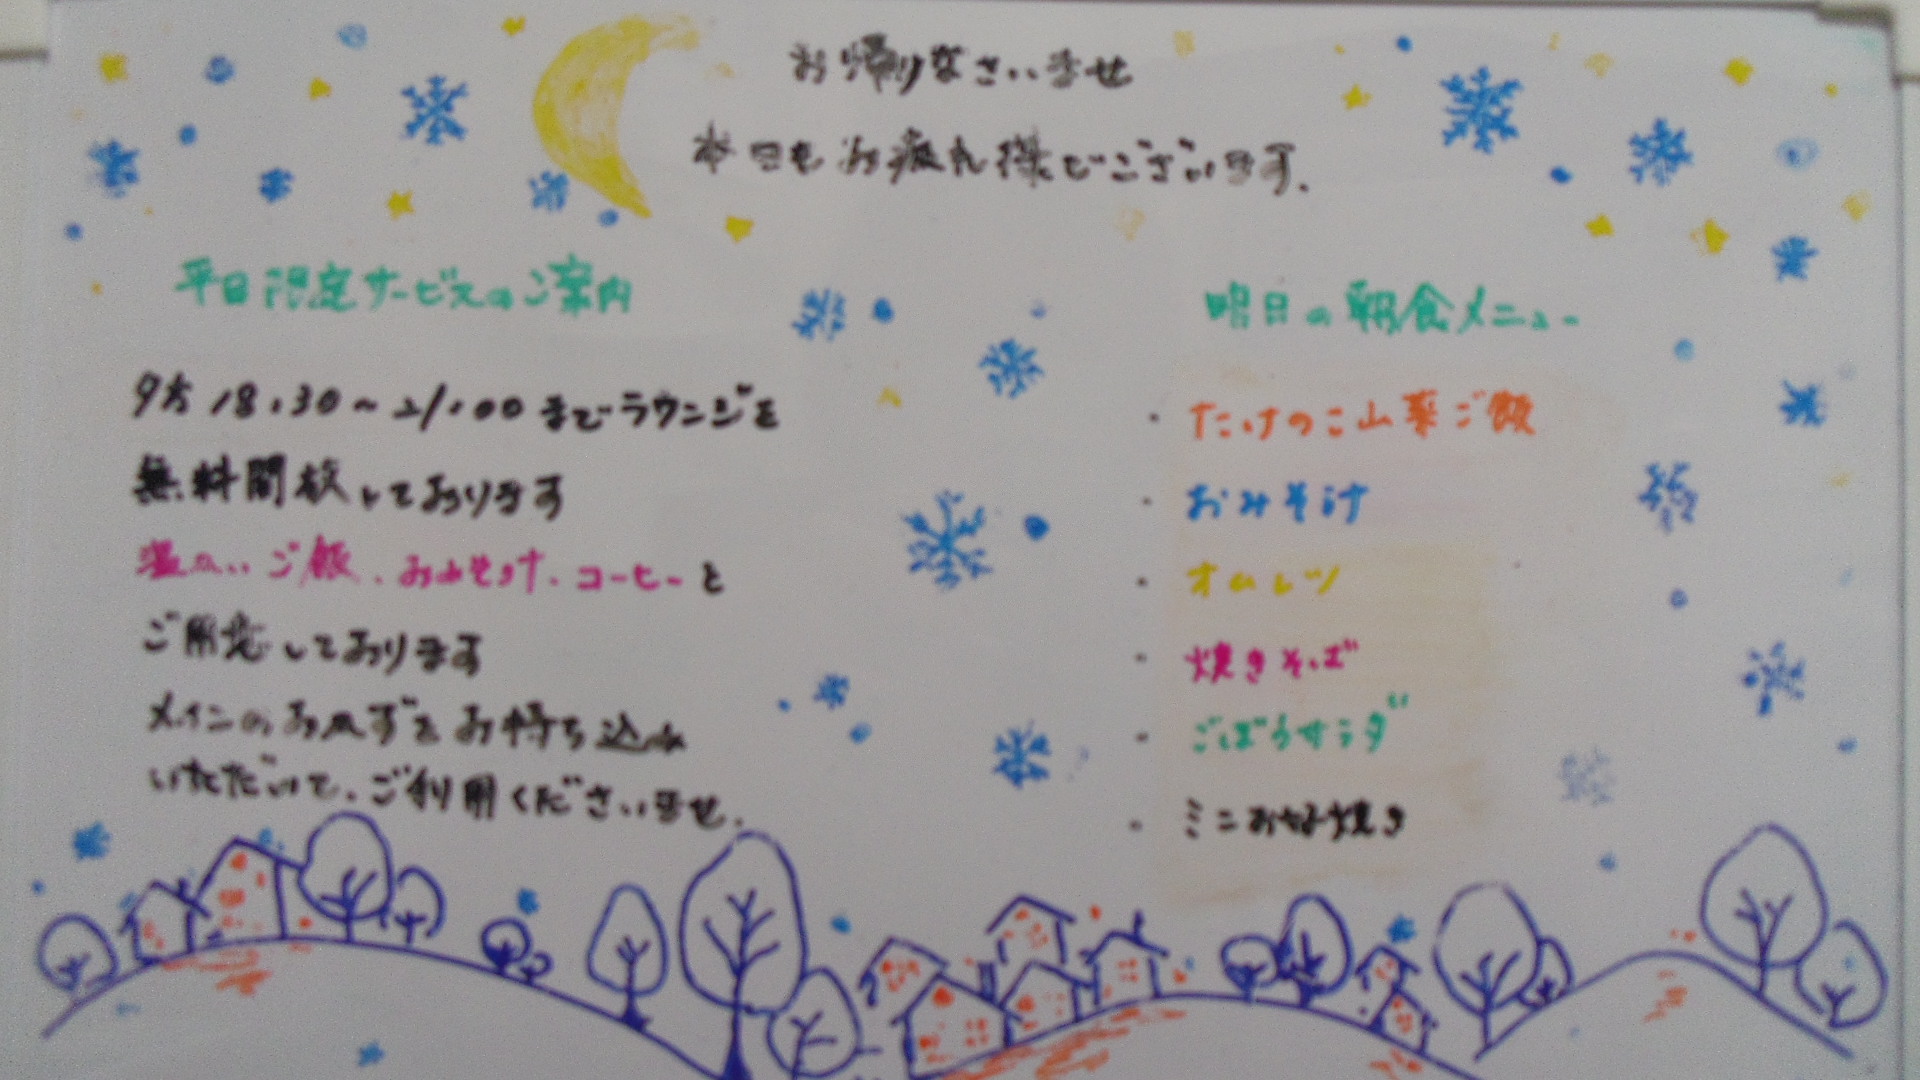 お帰りなさいませ
本日もお疲れ様でございます.
平日限定サービスのご案内
夕方18:30~21:00までラウンジを
無料開放しております
温かいご飯、おみそ汁、コーヒーと
ご用意しております
メインのおかずをお持ち込み
いただいて、ご利用くださいませ.
明日の朝食メニュー
・たけのこ山菜ご飯
・おみそ汁
・オムレツ
・焼きそば
・ごぼうサラダ
・ミニお好焼き